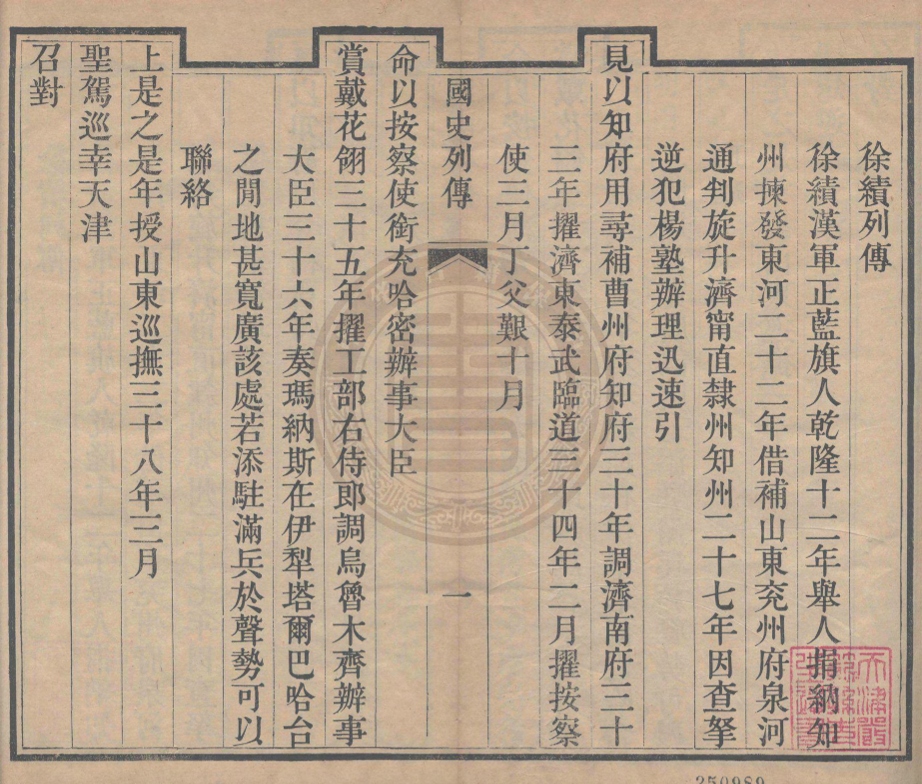 徐績列傳
徐績漢軍正藍旗人乾隆十二年舉人捐納知
州揀發東河二十二年借補山東兖州府泉河
通判旋升濟甯直隸州知州二十七年因查拏
逆犯楊塾辦理迅速引
見以知府用尋補曹州府知府三十年調濟南府三十
三年擢濟東泰武臨道三十四年二月擢按察
使三月丁父艱十月
國史列傳
一
命以按察使銜充哈密辦事大臣
賞戴花翎三十五年擢工部右侍郎調烏魯木齊辦事
大臣三十六年奏瑪納斯在伊犁塔爾巴哈台
之閒地甚寬廣該處若添駐滿兵於聲勢可以
聯絡
上是之是年授山東巡撫三十八年三月
聖駕巡幸天津
召對
250989